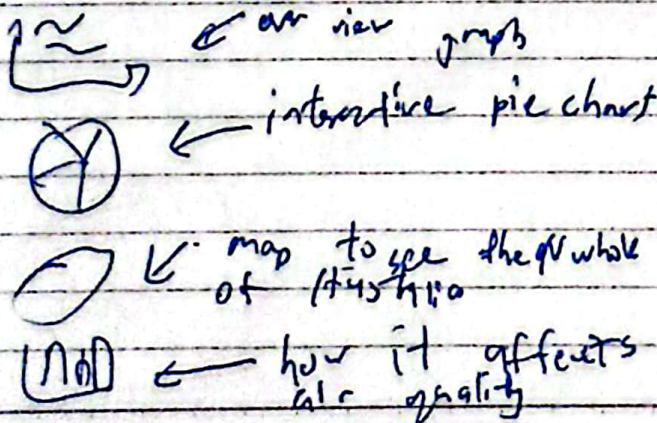 over view graph
interactive pie chart
map to see the whole
of
how it affects
air quality